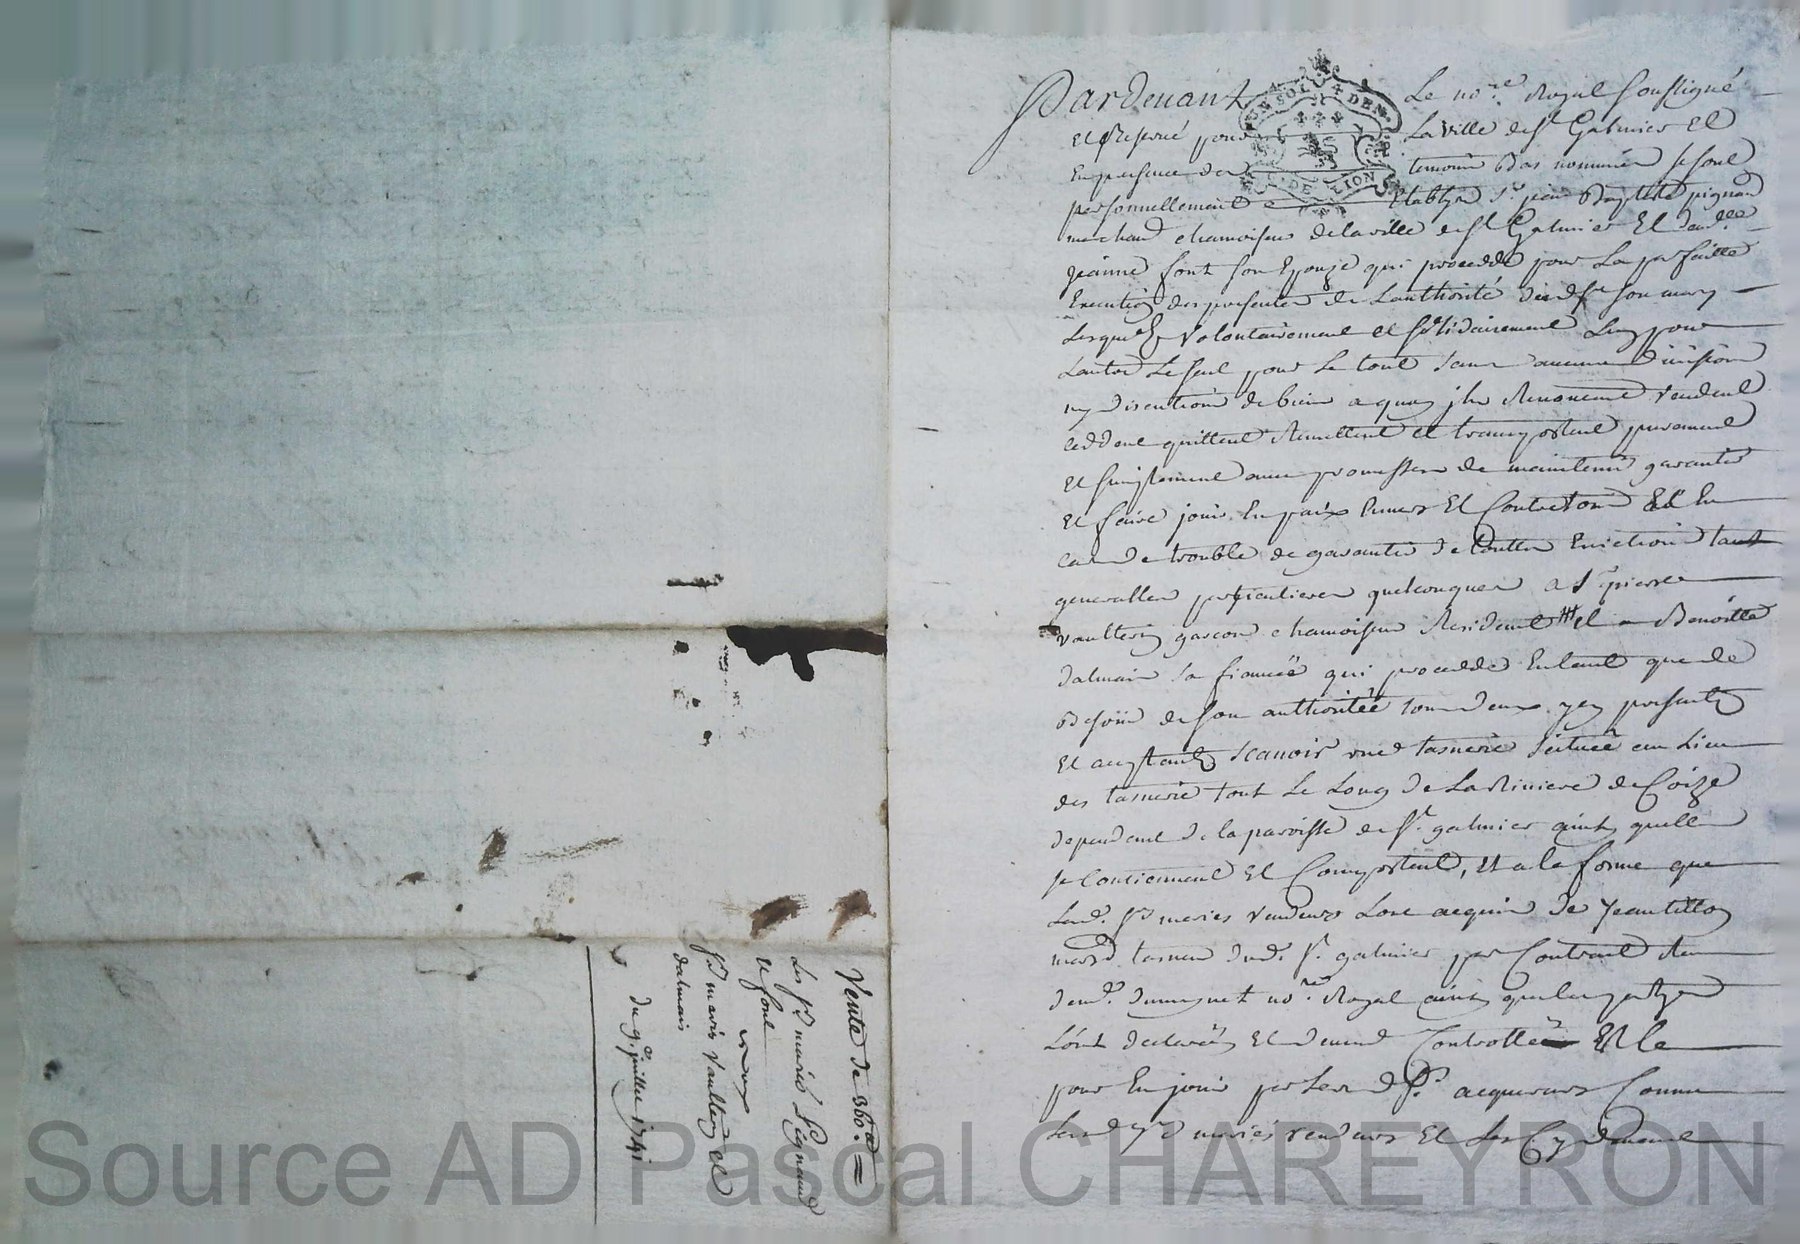 Pardevant Le no.re Royal soussigné
UN SOL 4 DEN.
G. DE LION
et Reservé pour La ville de st Galmier Et
En presence des temoins bas nommés se sont
personnellement Etablys sr jean Baptiste pignard
marchand chamoiseur de la ville de st Galmier Et dend.lle
jeanne font son Epouze qui procedde pour La perfaitte
Execution des presentes de Lauthorité dud. sr son mary
Lesquels volontairement et solidairement Lun pour
Lautre Le seul pour Le tout sans aucune division
ny discution de biens a quoy jls Renoncent vendent
ceddent quittent Remettent et transportent purement
Et simplement avec promesse de maintenir garantir
Et faire jouir En paix Envers Et Contre tous Et En
cas de trouble de garantir de touttes Evictions tant
generalles particulieres quelconques a sr pierre
vaultery garcon chamoiseur Resident Et a Benoitte
dalmais sa fiancée qui procedde Entant que de
besoin de son authoritée tous deux jcy presents
Et acceptants scavoir une tannerie scituée au Lieu
des tanneries tout Le Long de La Riviere de Coize
dependant de la paroisse de st galmier ainsy quelle
se Contiennent Et Comportent, Et a la forme que
Lesd. srs mariés vendeurs Lont acquis de jean tillon
march.d tanneur dud. st galmier par Contrat Reçu
dem.e dumynet no.re Royal ainsy que les partyes
Lont declarée Et deument Controllée Et le
pour En jouir par Lesd. srs acquereurs Comme
Lesd. srs mariés vendeurs Et Les Cydevant
Vente de 360.#
Les srs mariés Pignard
et font
aux
srs mariés vaultery et
dalmais
du 9.e juillet 1741
Source AD Pascal CHAREYRON